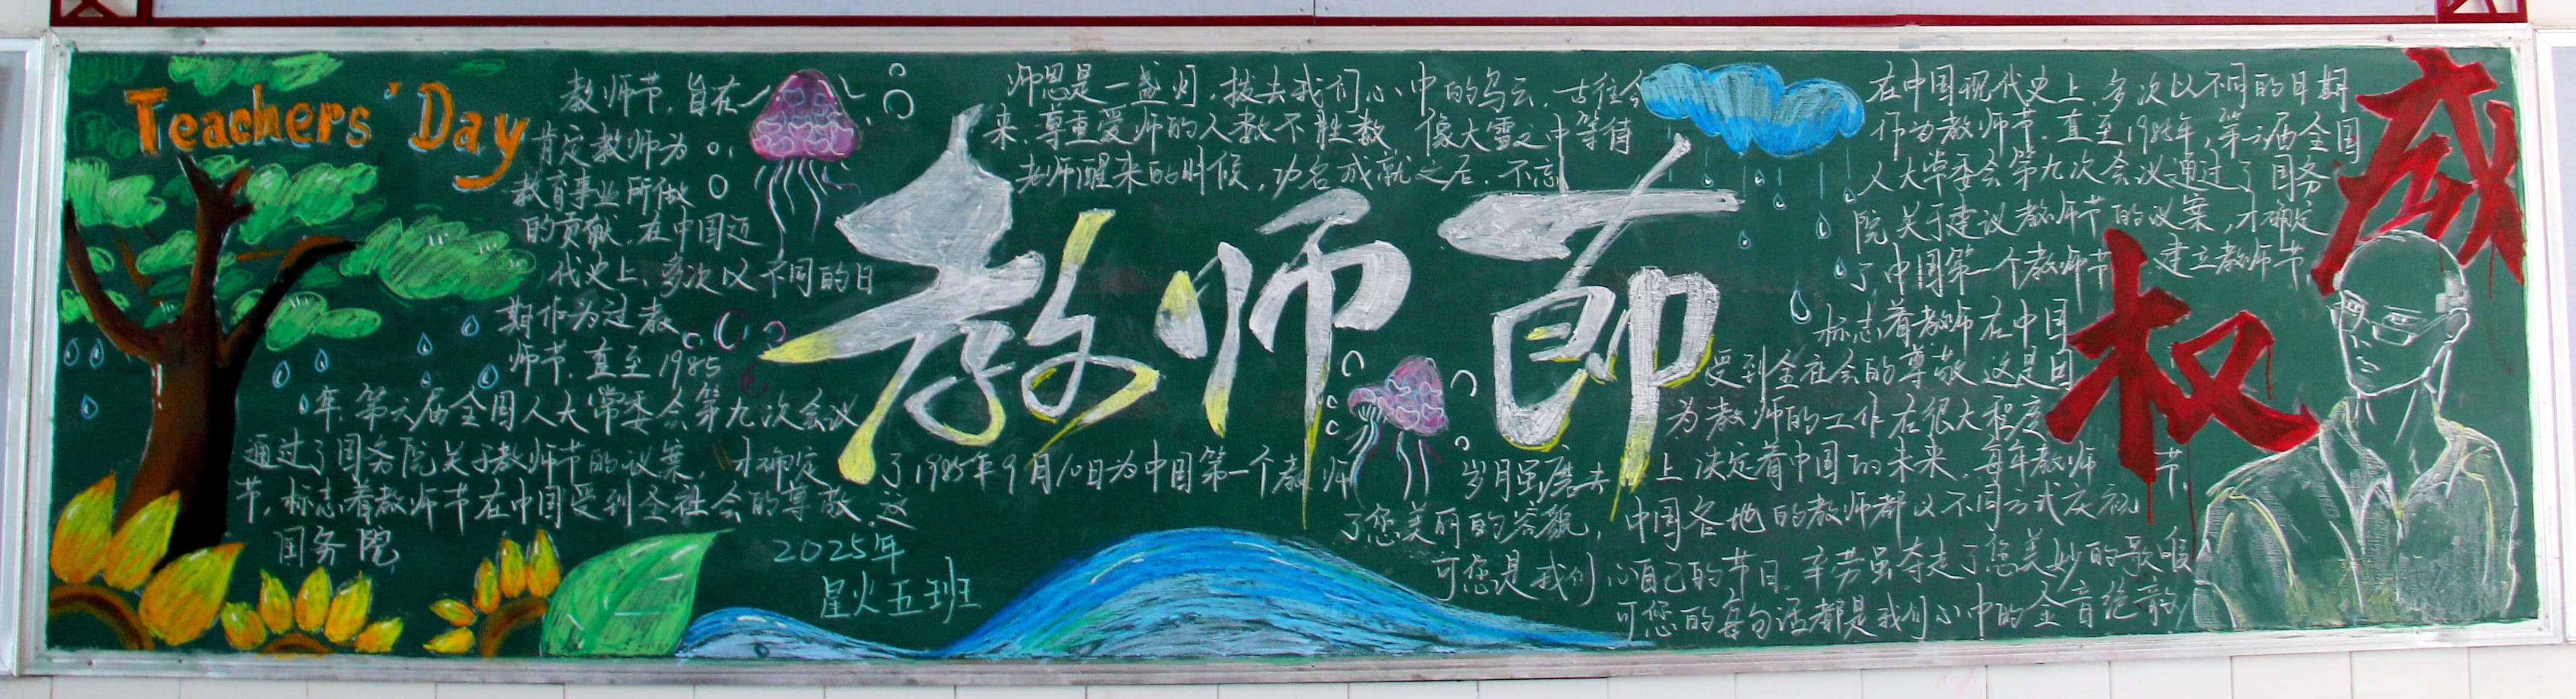 Teachers' Day
教师节,旨在
肯定教师为
教育事业所做
的贡献.在中国近
代史上,多次以不同的日
期作为过教
师节.直至1985
年,第六届全国人大常委会第九次会议
通过了国务院关于教师节的议案,才确定了1985年9月10日为中国第一个教师
节,标志着教师节在中国受到全社会的尊敬.这
国务院
2025年
星火五班
师恩是一盏灯,拨去我们心中的乌云,古往今
来,尊重爱师的人数不胜数,像大雪之中等待
老师醒来的时候,功名成就之后,不忘
教师节
在中国现代史上,多次以不同的日期
作为教师节.直至1985年,第六届全国
人大常委会第九次会议通过了国务
院关于建议教师节的议案,才确定
了中国第一个教师节.建立教师节
标志着教师在中国
受到全社会的尊敬.这是因
为教师的工作在很大程度
上决定着中国的未来.每年教师节,
中国各地的教师都以不同方式庆祝
自己的节日.辛劳虽夺走了您美妙的歌喉
可您的每句话都是我们心中的金音绝韵
岁月虽磨去
了您美丽的容颜,
可您是我们心
感
权